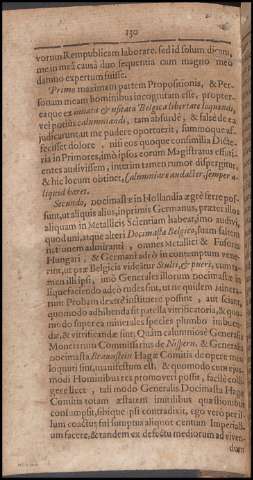 130
vorum Rempublicam laborare, sed id solum dicam,
me in mea causâ duo sequentia cum magno meo
damno expertum fuisse.
Primo maximam partem Propositionis, & Per-
sonam meam hominibus incognitam esse, propter-
ea que ex innata & usitata Belgica libertate loquendi,
vel potius calumniandi, tam absurdè, & falsè de ea
judicarunt ut me pudere oportuerit, summoque af-
fecisset dolore, nisi eos quoque consimilia Dicte-
ria in Primores, imò ipsos eorum Magistratus effuti-
entes audivissem, interim tamen rumor dispergitur,
& hic locum obtinet, Calumniare audacter, semper a-
liquid hæret.
Secundo, docimastæ in Hollandia ægrè ferre pos-
sunt, ut aliquis alius, inprimis Germanus, præter illos
aliquam in Metallicis Scientiam habeat, imo audivi,
quod uni, atque alteri Docimastæ Belgico, suam saltem
nationem admiranti, omnes Metallici & Fusores
Hungari, & Germani adeò in contemptum vene-
rint, ut præ Belgicis videātur Stulti, & pueri, cum ta-
men illi ipsi, imò Generales illorum docimastæ in
liquefaciendo adeò rudes sint, ut ne quidem Minera-
rum Probam dextrè instituere possint, aut sciant,
quomodo adhibenda sit patella vitrificatoria, & quo-
modo super ea minerales species plumbo imbuen-
dæ, & vitrificandæ sint. Quàm calumniosè Generalis
Monetarum Commissarius de Nispern, & Generalis
docimasta Braunstein Hagæ Comitis de opere meo
loquuti sint, manifestum est, & quomodo ejus
modi Hominibus res promoveri possit, facilè colli-
gere licet, tali modo Generalis Docimasta Hagæ
Comitis totam æstatem inutilibus quæstionibus
consumpsit, sibique ipsi contradixit, ego verò per il-
lum coactus fui sumptus aliquot centum Imperiali-
um facere, & tandem ex defectu mediorum ad viven-
dum